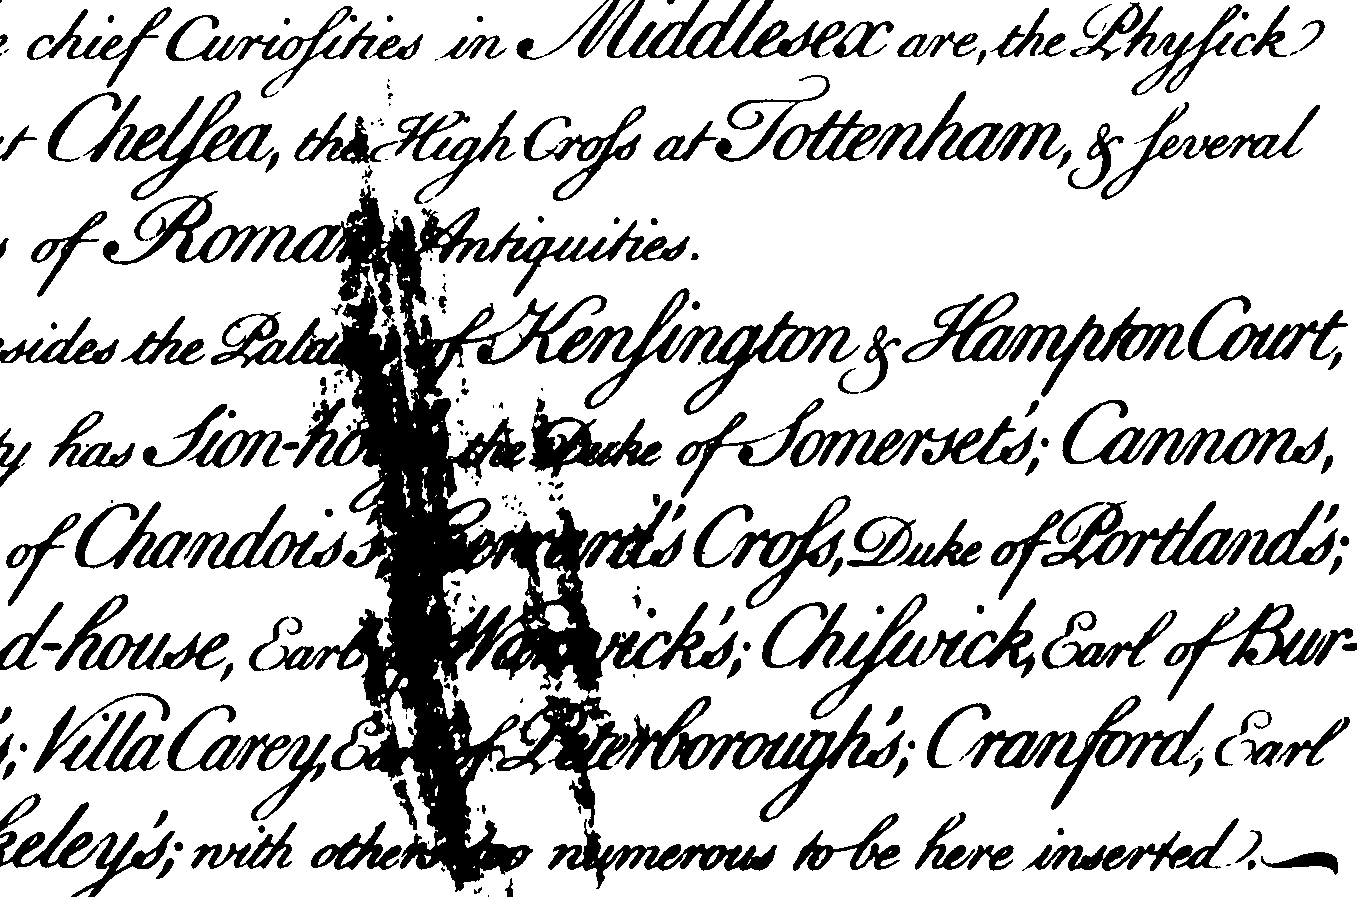 chief Curioſities in Middlesex are, the Phyſick
at Chelſea, the High Croſs at Tottenham, & ſeveral
of Roman Antiquities.
the Palaces of Kenſington & Hampton Court,
has Sion-house the Duke of Somerset's; Cannons,
of Chandois's; Gerrard's Croſs, Duke of Portland's;
d-house, Earl of Warwick's; Chiſwick, Earl of Bur-
's; Villa Carey, Earl of Peterborough's; Cranford, Earl
keley's; with others too numerous to be here inserted.